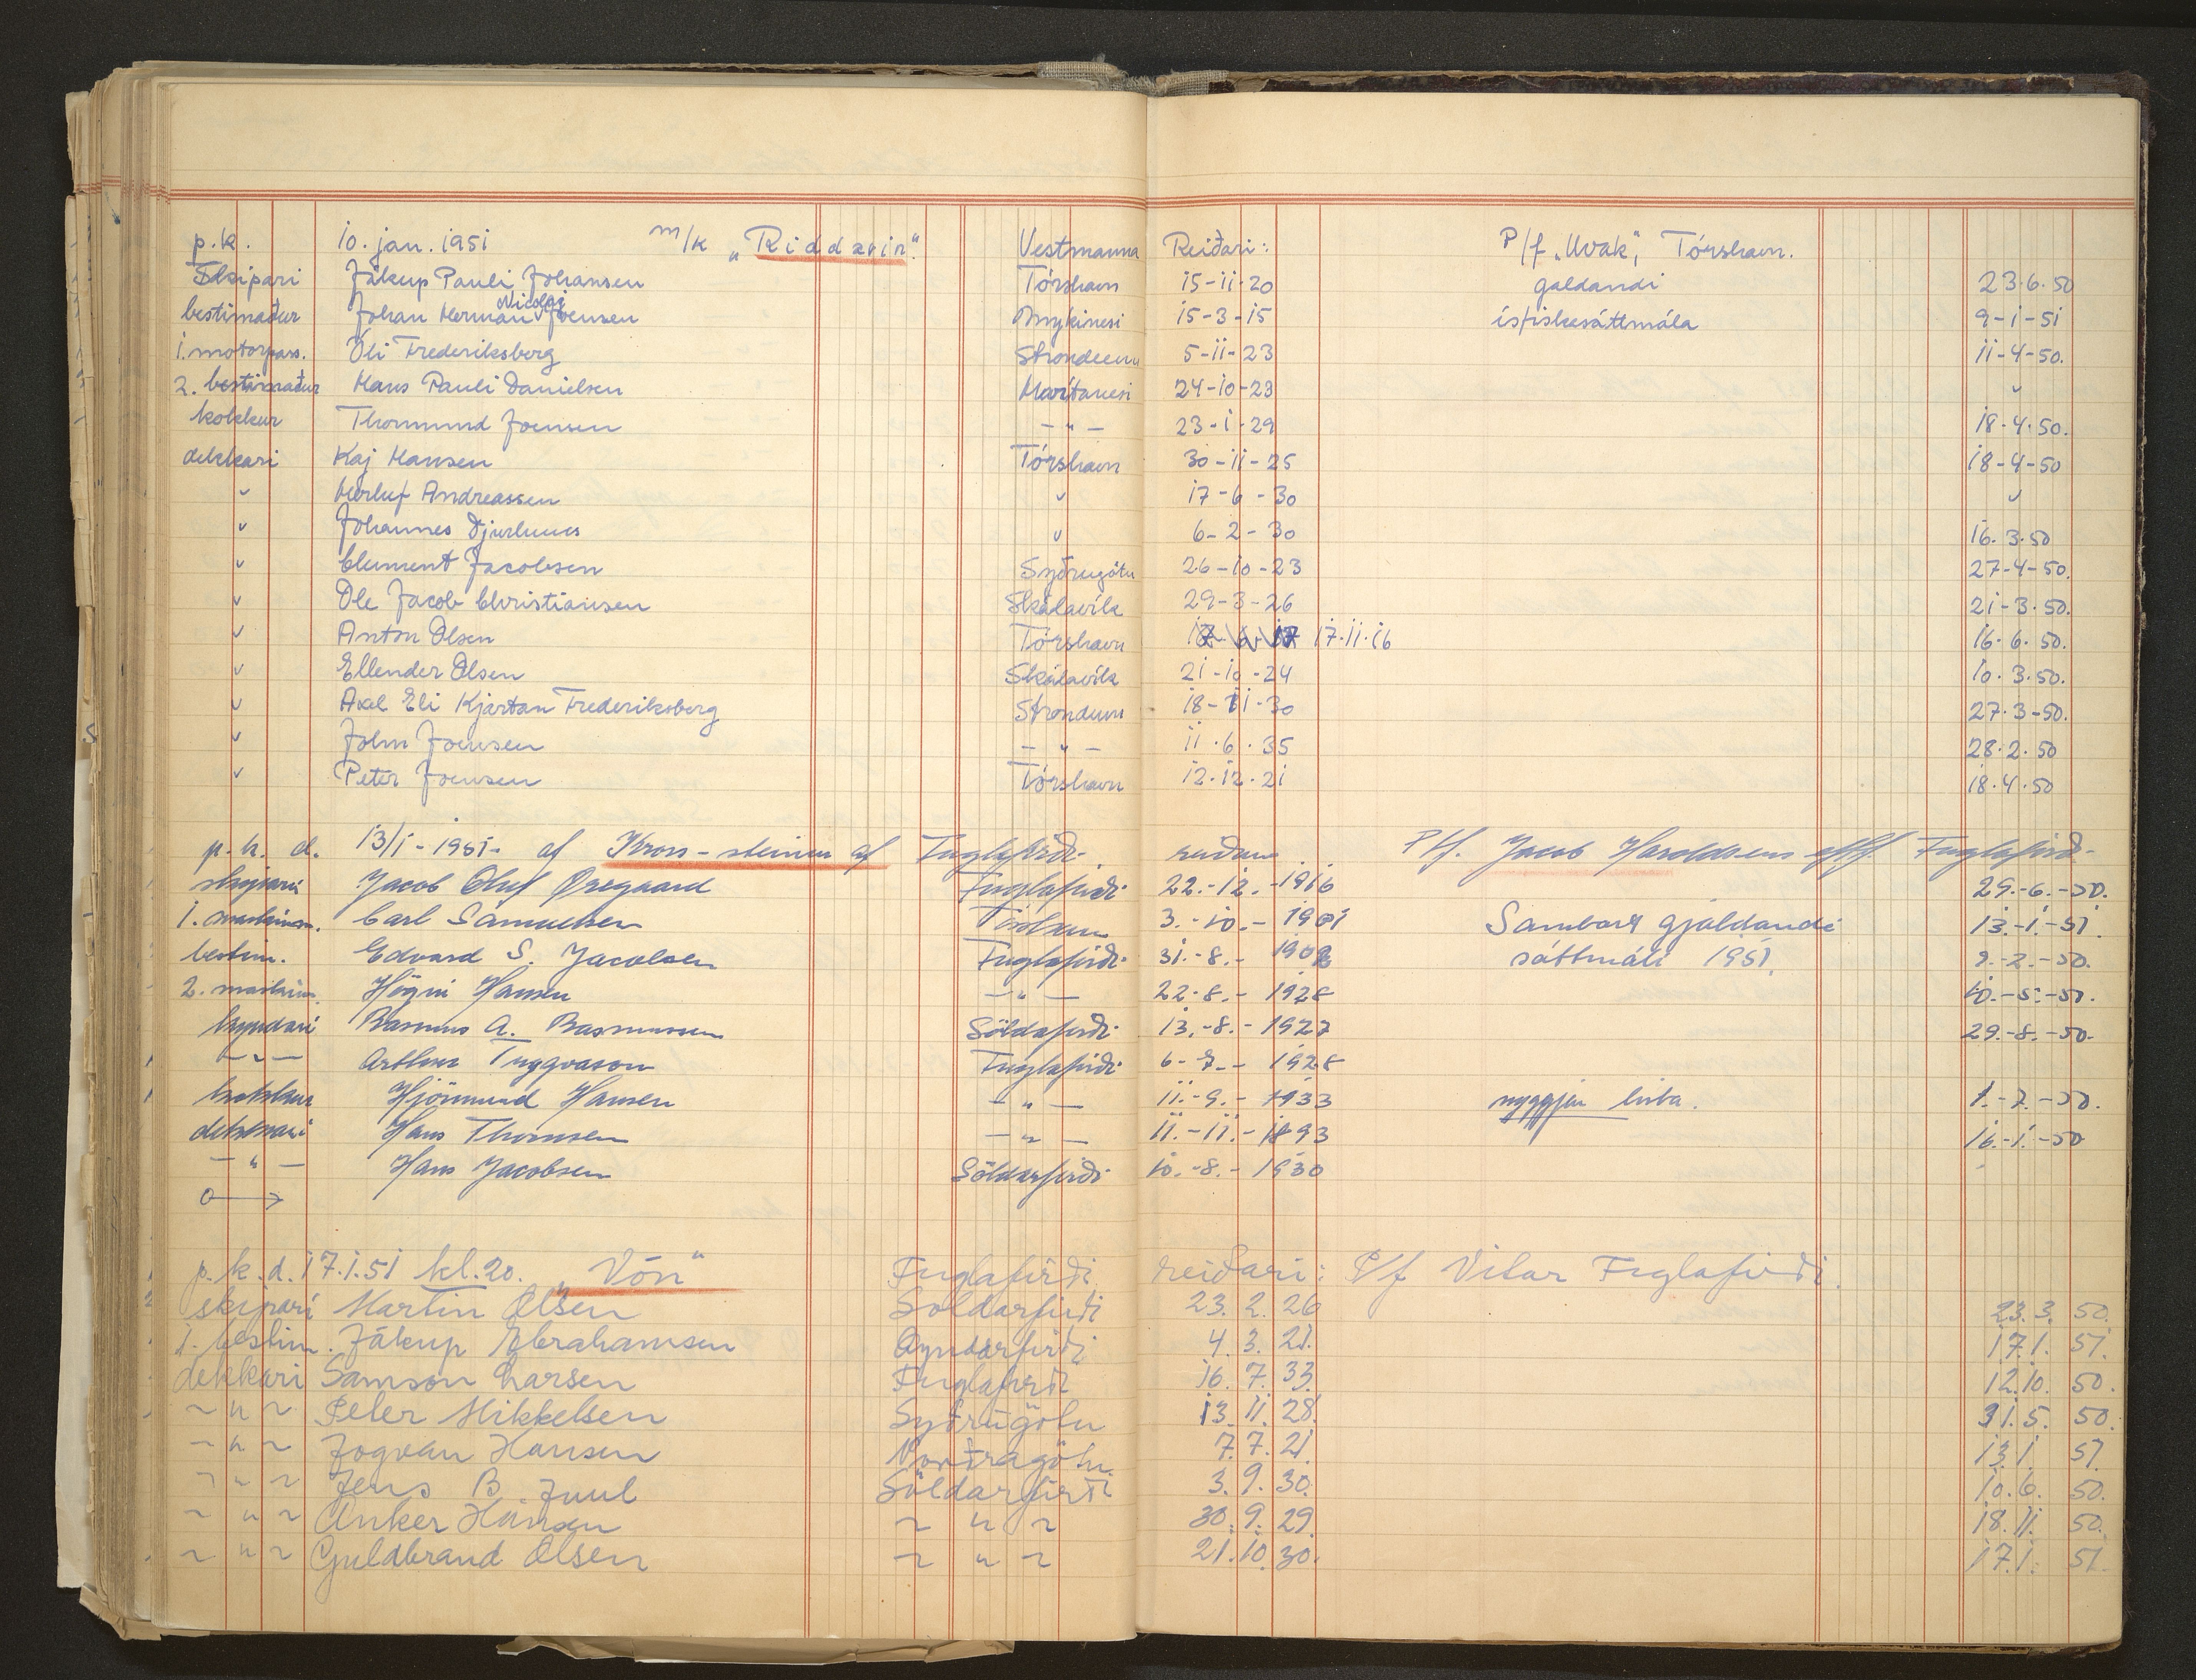 p.k. 10. jan. 1951 m/k „Riddarin“ Vestmanna Reiðari: P/f „Uvak“, Tórshavn.
Skipari Jákup Pauli Johansen Tórshavn 15-11-20 galdandi 23.6.50
bestimaður Johan Herman Nicolai Joensen Mykinesi 15-3-15 ísfiskasáttmála 9-1-51
1. motorpass. Óli Frederiksberg Strondum 5-11-23 11-4-50.
2. bestimaður Hans Pauli Danielsen Hvítanesi 24-10-23 〃
kokkur Thormund Joensen -〃- 23-1-29 18.4.50.
dekkari Kaj Hansen Tórshavn 30-11-25 18-4-50
〃 Herluf Andreassen 〃 17-6-30 〃
〃 Johannes Djurhuus 〃 6-2-30 16.3.50
〃 Clement Jacobsen Syðrugøtu 26-10-23 27-4-50.
〃 Ole Jacob Christiansen Skálavík 29-3-26 21-3.50.
〃 Anton Olsen Tórshavn 17.11.16 16.6.50.
〃 Ellender Olsen Skálavík 21-10-24 10.3.50.
〃 Axel Eli Kjartan Frederiksberg Strondum 18-11-30 27.3-50.
〃 John Joensen -〃- 11.6.35 28.2.50
〃 Peter Joensen Tórshavn 12.12.21 18.4.50
p.k. d. 13/1-1951- af Kross-steinur af Fuglafirði P/f. Jacob Haroldsens eftf. Fuglafirð-
skipari Jacob Oluf Øregaard Fuglafirði 22.-12.-1916 29.-6.-50.
1. maskinm. Carl Samuelsen Tórshavn 3.-10.-1901 Sambart gjaldandi 13.-1.-51.
bestim. Edvard S. Jacobsen Fuglafirði 31.-8.- 1902 sáttmáli 1951. 9.-2.-50.
2. maskinm. Högni Hansen -〃- 22-8.- 1928 10.-5.-50.
kyndari Rasmus A. Rasmussen Söldafirði 13.-8.-1927 29.-8.-50-
-〃- Arthur Tryggvason Fuglafirði 6-7.- 1928
kokkur Hjörmund Hansen -〃- 11.-9.- 1933 nyggjen 1.-7.-50.
dekkari Hans Thomsen -〃- 11.-11.-1893 16.-1.-50
-〃- Hans Jacobsen Söldarfirði 10.-8.-1930
p.k.d. 17.1.51 kl.20. „Vón“ Fuglafirði reiðari: P/f Vitar Fuglafirði.
skipari Martin Olsen Soldarfirði 23. 2. 26 23.3. 50.
1. bestim. Jákup Abrahamsen Oyndarfirði 4. 3. 21. 17.1. 51.
dekkari Samson Larsen Fuglafirði 16. 7. 33. 12.10. 50.
~〃~ Peter Mikkelsen Syðrugötu 13. 11. 28. 31.5. 50.
~〃~ Jogvan Hansen Norðragötu 7. 7. 21. 13.1. 51.
~〃~ Jens B. Juul Söldarfirði 3. 9. 30. 10.6. 50.
~〃~ Anker Hansen ~〃~ 30. 9. 29. 18.11. 50.
~〃~ Guldbrand Olsen ~〃~ 21. 10. 30. 17.1. 51.